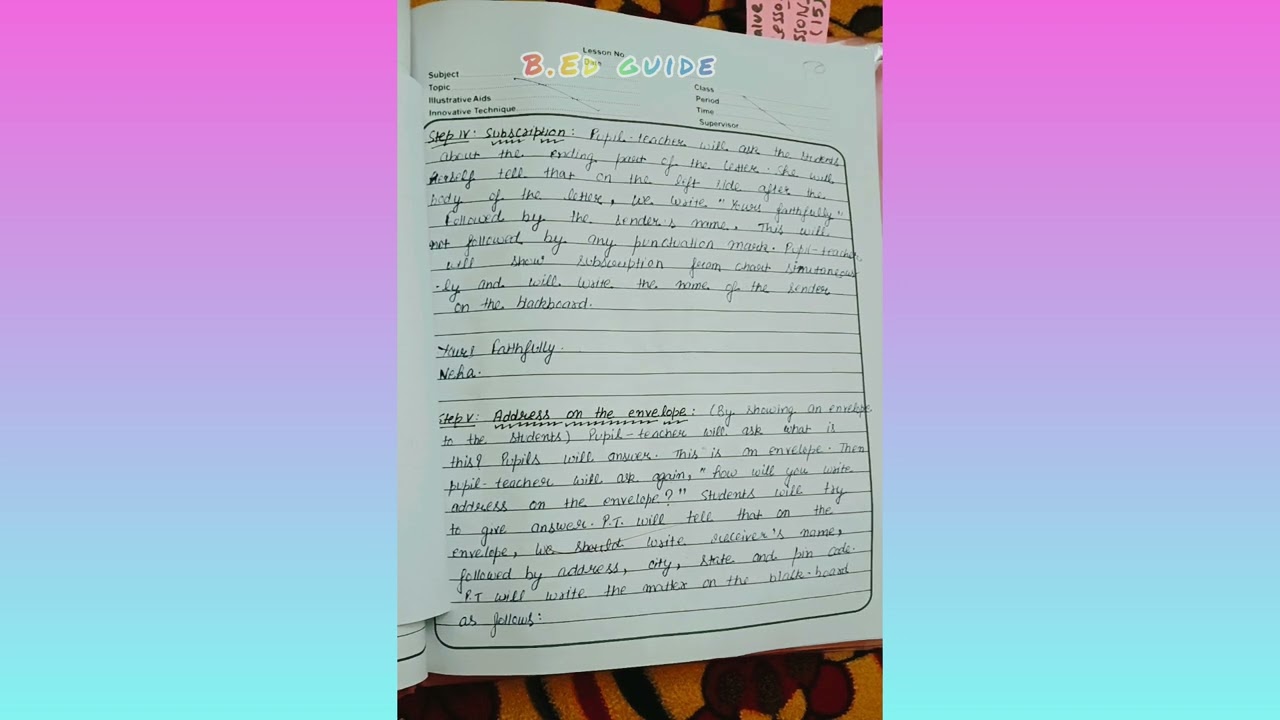 alue
Lesso
SSON
(15)
B.ED GUIDE
Lesson No.
Date
Subject
Topic
Illustrative Aids
Innovative Technique
Class
Period
Time
Supervisor
Step IV: Subscription: Pupil-teacher will ask the students
about the ending part of the letter. She will
herself tell that on the left side after the
body of the letter, we write "Yours faithfully"
followed by the sender's name. This will
not followed by any punctuation mark. Pupil-teacher
will show subscription from chart simutaneous
-ly and will write the name of the sender
on the blackboard.
Yours Faithfully.
Neha.
Step V: Address on the envelope: (By showing an envelope
to the students) Pupil-teacher will ask what is
this? Pupils will answer. This is an envelope. Then
pupil-teacher will ask again, "how will you write
address on the envelope?" Students will try
to give answer. P.T. will tell that on the
envelope, we should write receiver's name,
followed by address, city, state and pin code.
P.T will write the matter on the black-board
as follows: